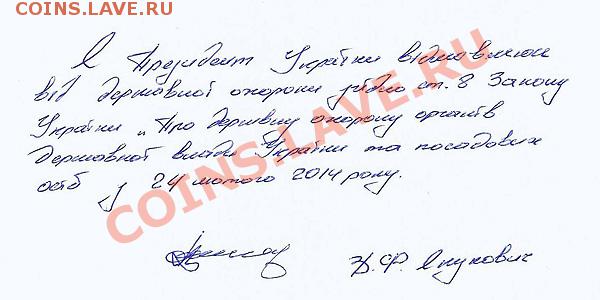 COINS.LAVE.RU
COINS.LAVE.RU
Я Президент України відмовляюсь
від державної охорони згідно ст. 8 Закону
України „Про державну охорону органів
державної влади України та посадових
осіб у 24 лютого 2014 року.
В.Ф. Янукович
COINS.LAVE.RU